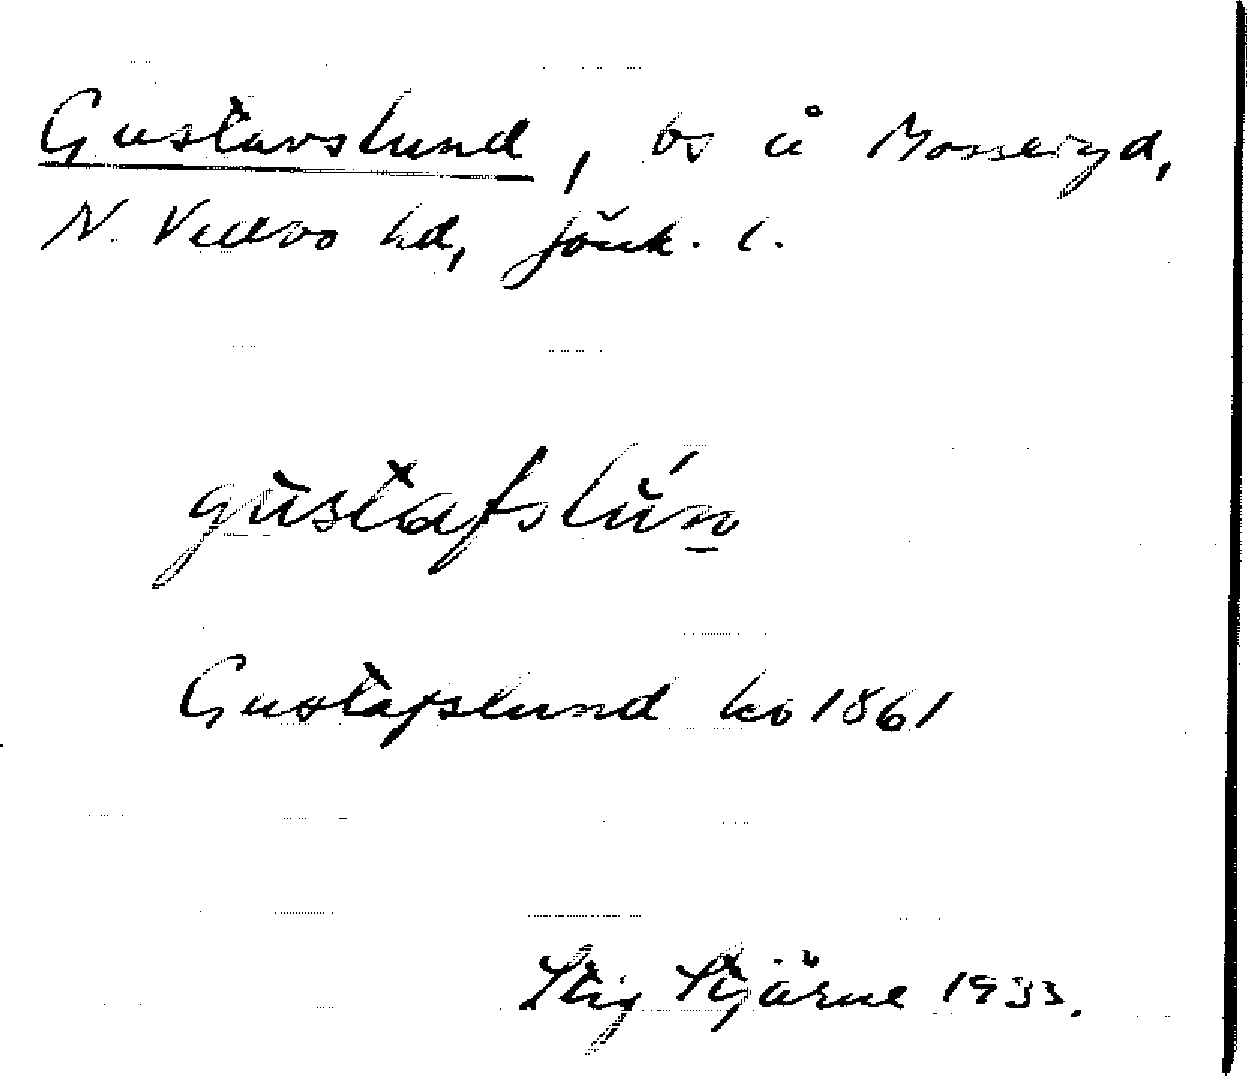 Gustavslund, bs å Mosseryd,
N. Vedbo hd, Jönk. l.
gustafslún
Gustafslund ko 1861
Stig Stjärne 1933.